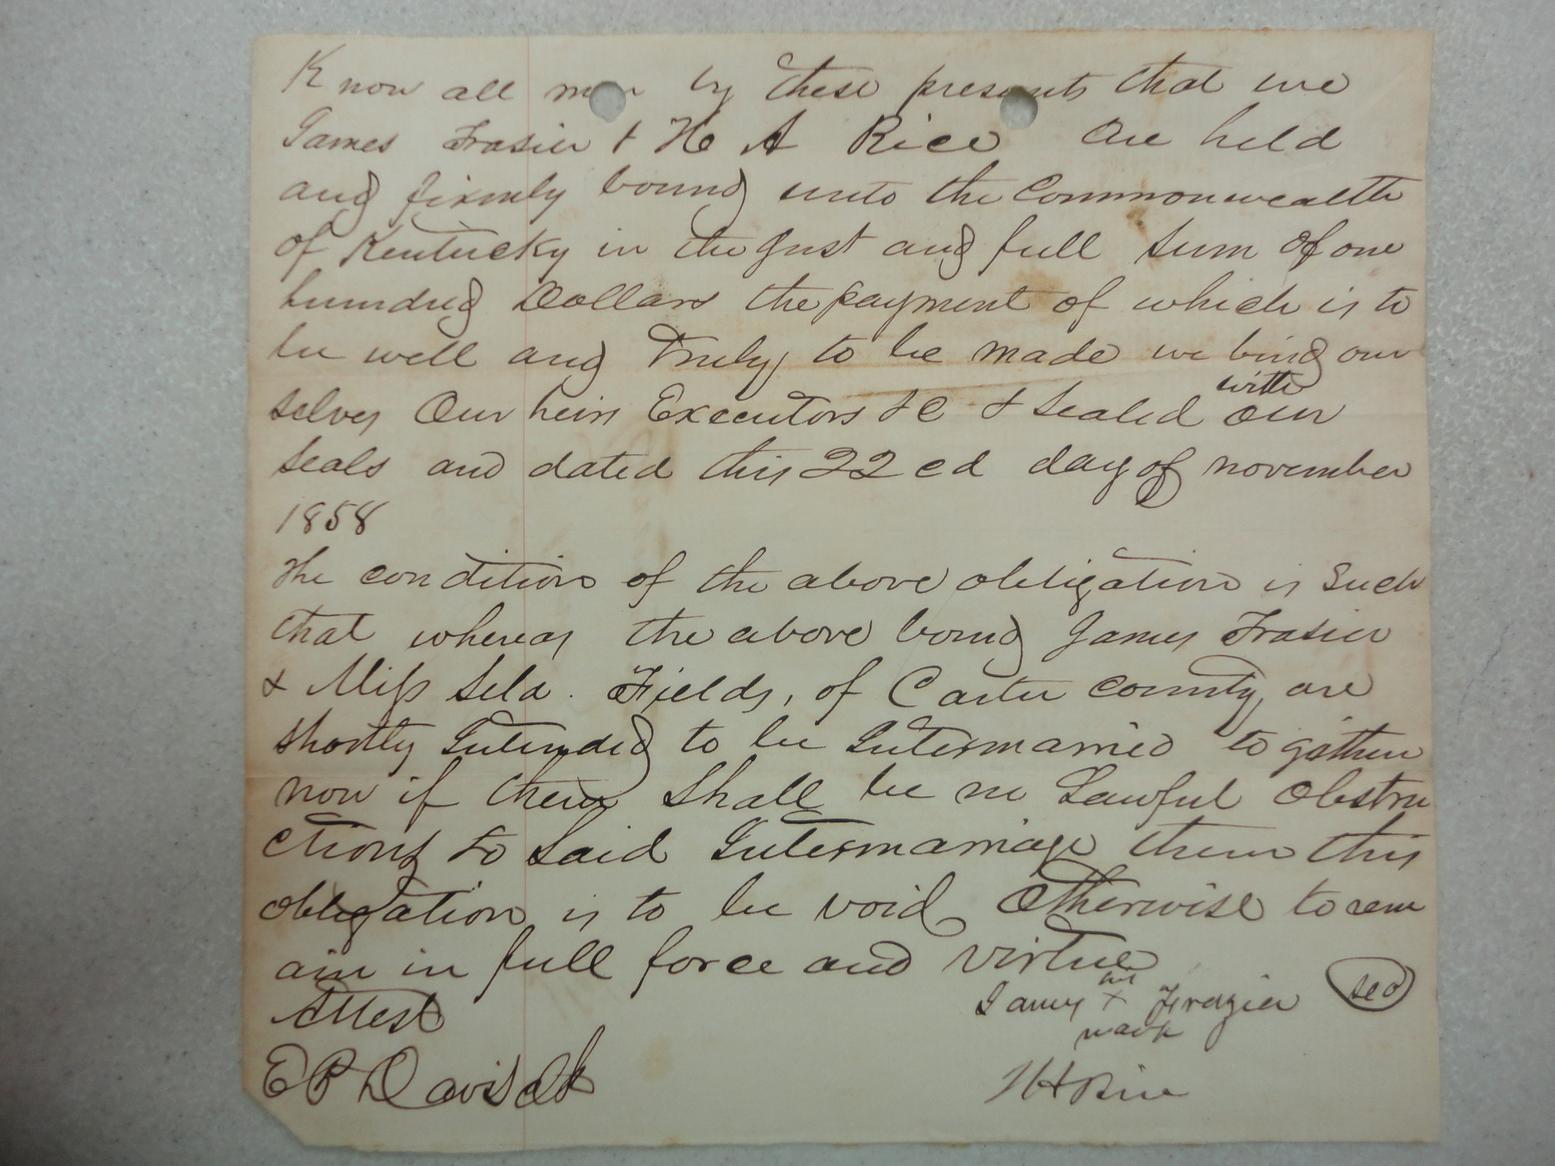 Know all men by these presents that we
James Frasier & H A Rice are held
and firmly bound unto the Commonwealth
of Kentucky in the Just and full sum of one
hundred Dollars the payment of which is to
be well and Truly to be made we bind our
selves Our heirs Executors &C & Sealed with our
seals and dated this 22cd day of november
1858
The condition of the above obligation is Such
that whereas the above bound James Frasier
& Miss Sela. Fields, of Carter county, are
shortly Intended to be Intermarried to gather
now if there Shall be no Lawful Obstru
ctions to Said Intermarriage then this
obligation is to be void Otherwise to rem
ain in full force and virtue
James his x mark Frazier
Attest
E P Davis clk
H A Rice